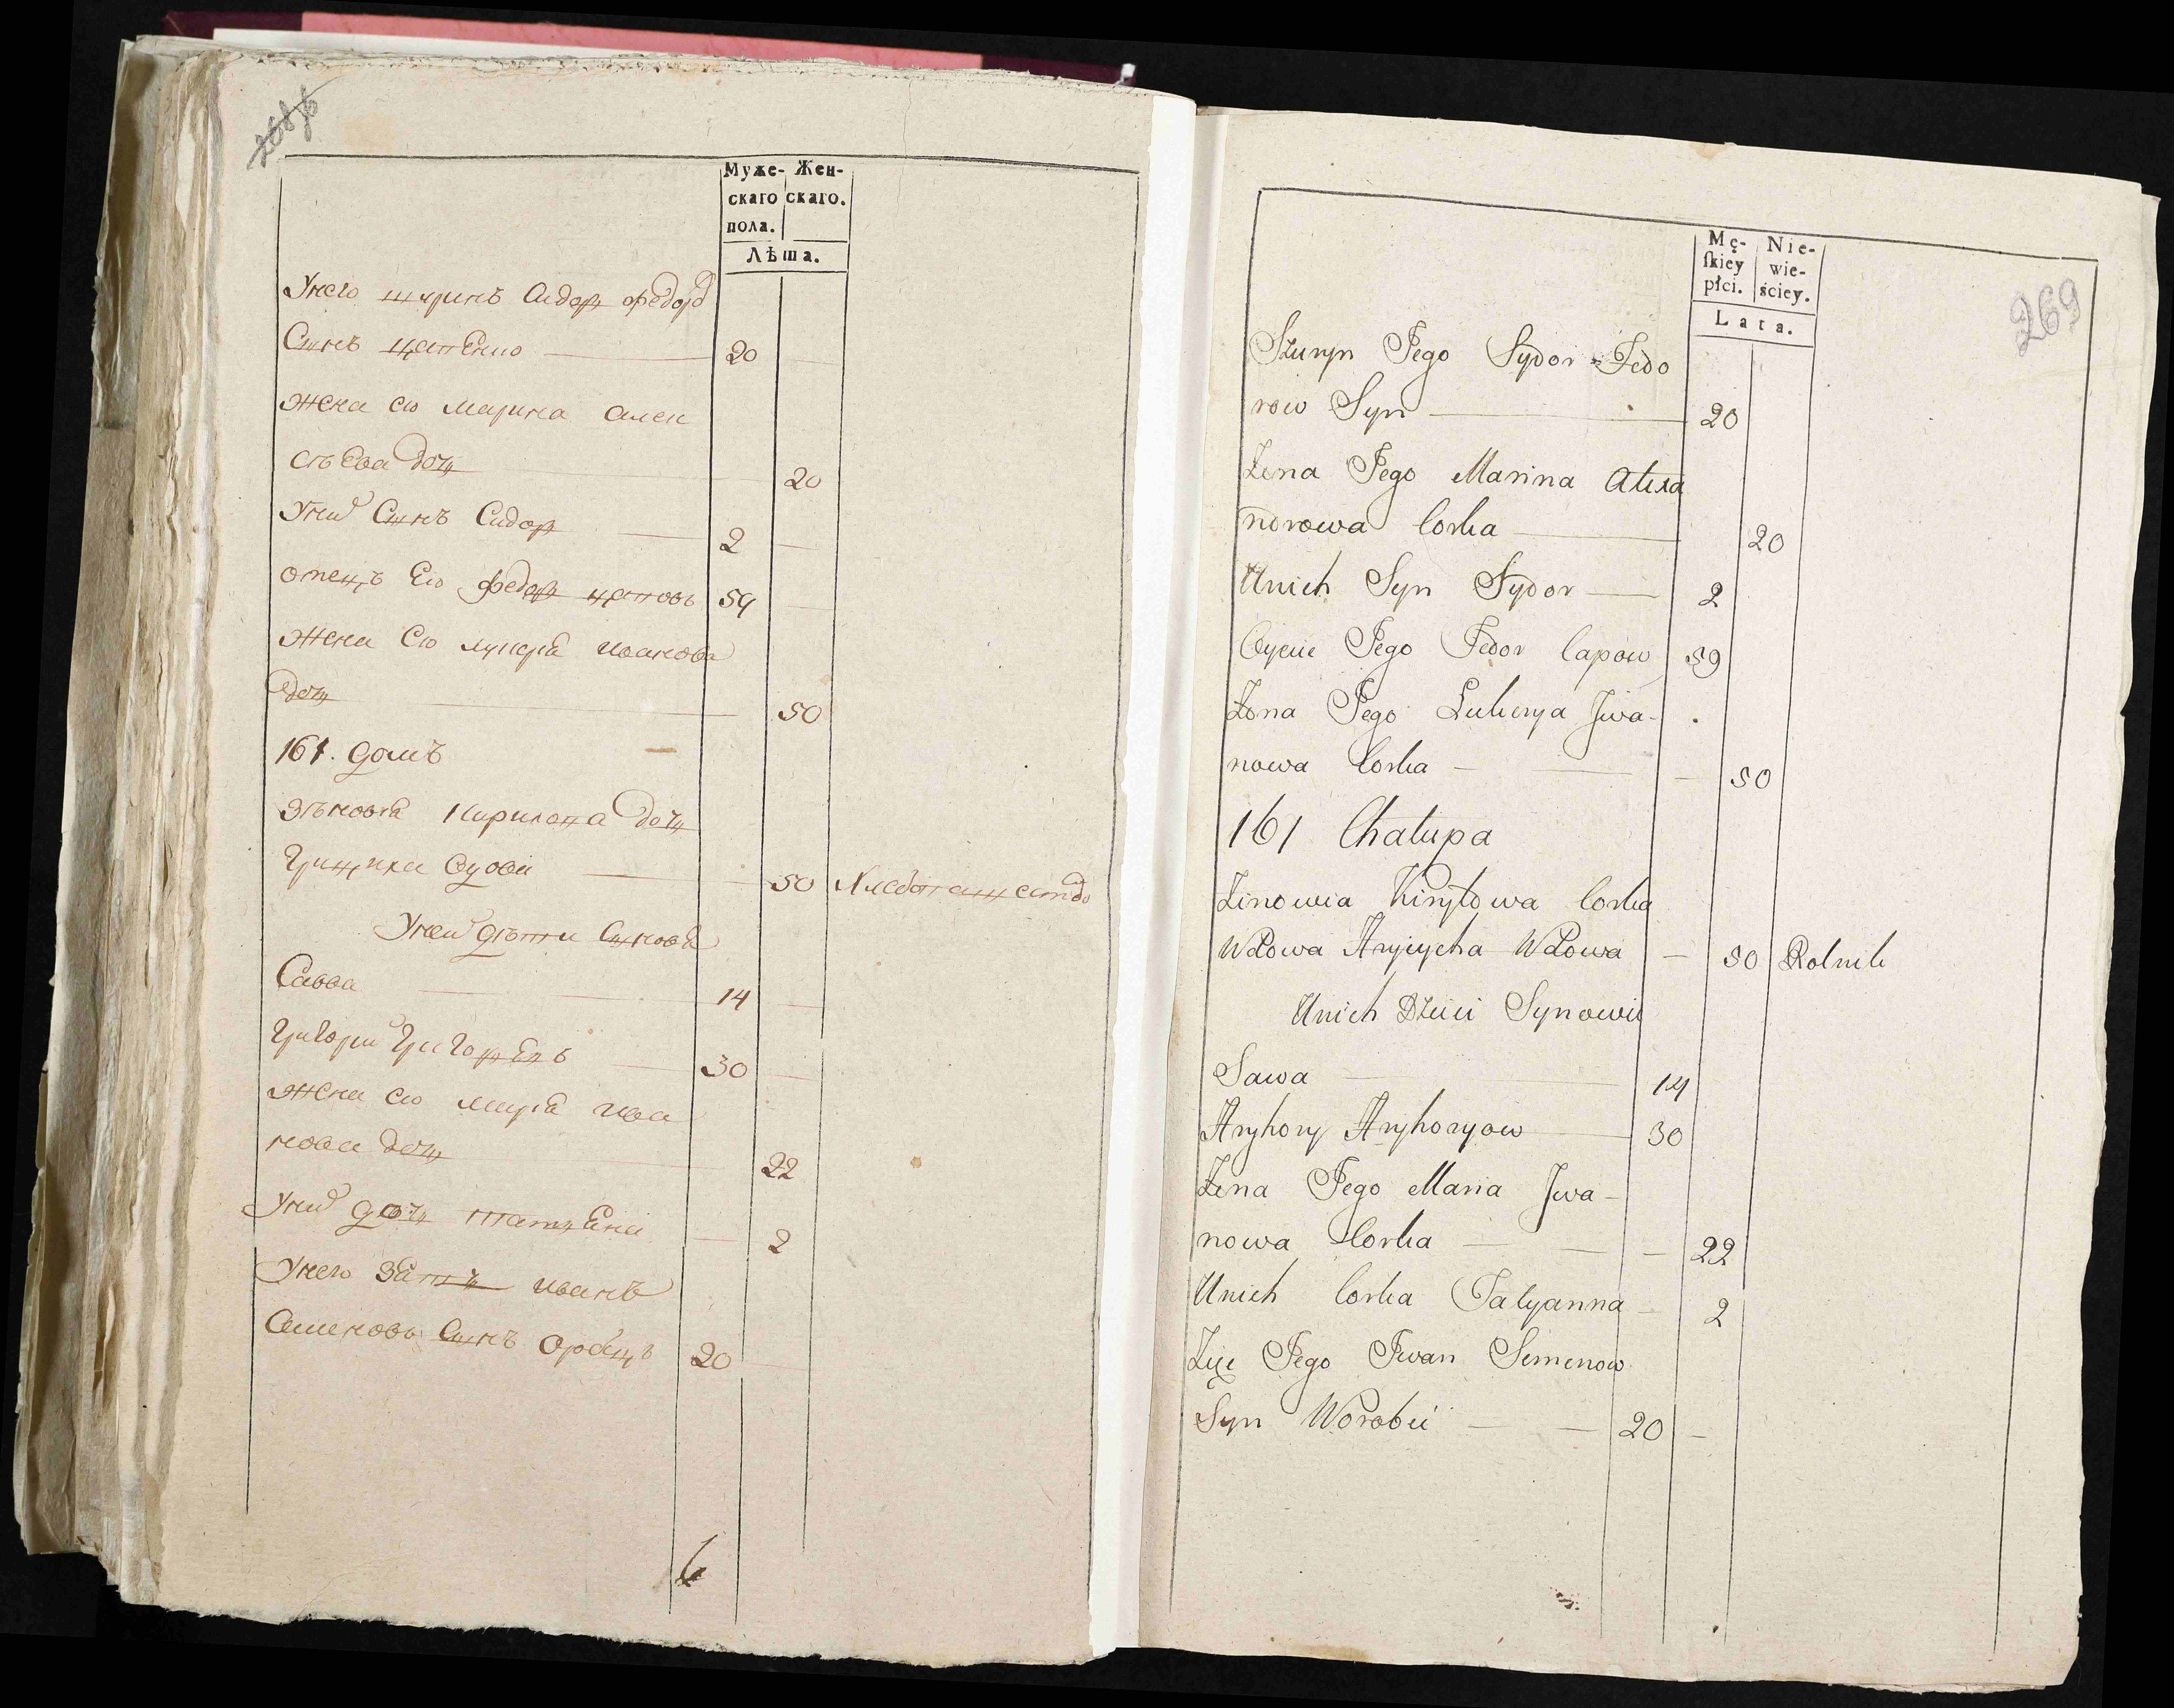 268 об
Муже- Жен-
скаго скаго.
пола.
Лѣта.
Унего шуринъ Сидор федоро
Сынъ 20
жена его марина алек
сѣева дочь 20
Уних Сынъ Сидор 2
отецъ Его федор цаповъ 59
жена его лукеря иванова
дочь 50
161. домъ
зѣновия кирилова дочь
Грициха вдова 50
Унеи дѣти Сыновя
Савва 14
Григори Григорьевъ 30
жена его мария ива
нова дочь 22
Уних дочь татьяна 2
Унего зять иванъ
Семеновъ Сынъ 20
6
269
Mę- Nie-
skiey wie-
płci. ściey.
Lata.
Szuryn Jego Sydor Fedo
row Syn 20
Żena Jego Marina Alexa
ndrowa Corka 20
Unich Syn Sydor 2
Oyciec Jego Fedor Capow 59
Żona Jego Lukerya Jwa-
nowa Corka 50
161 Chałupa
Zinowia Kiryłowa Corka
Wdowa Hrycycha Wdowa 50 Rolnik
Unich Dzieci Synowie
Sawa 14
Hryhory Hryhoryow 30
Żena Jego Maria Jwa-
nowa Corka 22
Unich Corka Tatyanna 2
Zięć Jego Jwan Semenow
Syn Worobei 20